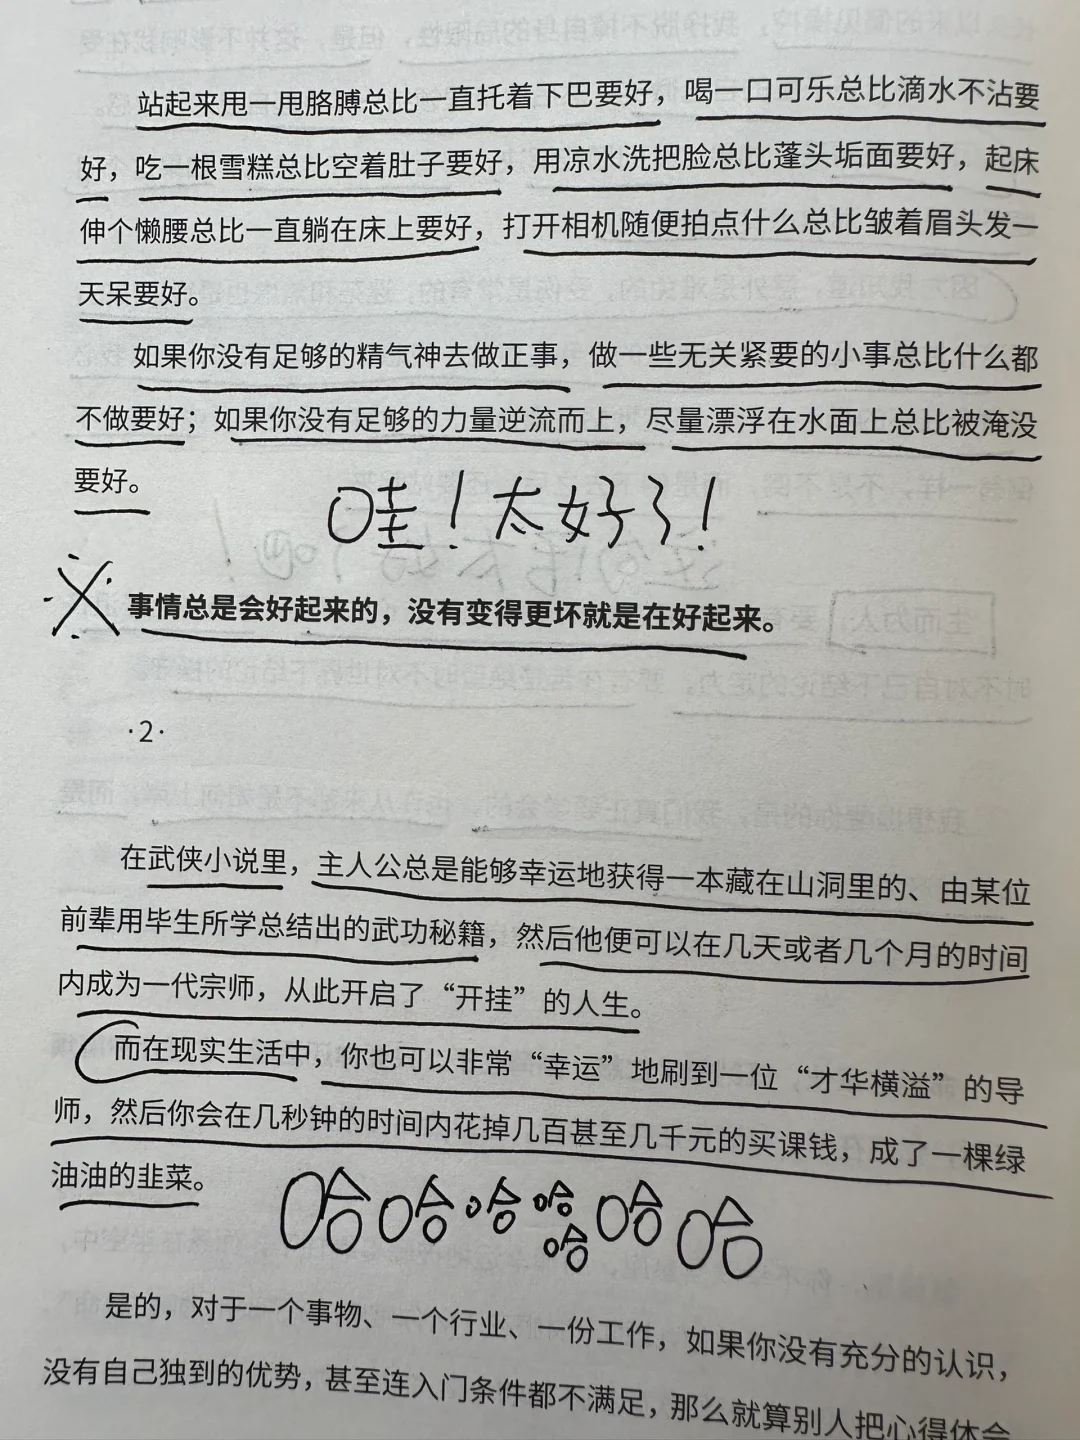 站起来甩一甩胳膊总比一直托着下巴要好，喝一口可乐总比滴水不沾要
好，吃一根雪糕总比空着肚子要好，用凉水洗把脸总比蓬头垢面要好，起床
伸个懒腰总比一直躺在床上要好，打开相机随便拍点什么总比皱着眉头发一
天呆要好。
如果你没有足够的精气神去做正事，做一些无关紧要的小事总比什么都
不做要好；如果你没有足够的力量逆流而上，尽量漂浮在水面上总比被淹没
要好。
哇！太好了！
事情总是会好起来的，没有变得更坏就是在好起来。
·2·
在武侠小说里，主人公总是能够幸运地获得一本藏在山洞里的、由某位
前辈用毕生所学总结出的武功秘籍，然后他便可以在几天或者几个月的时间
内成为一代宗师，从此开启了“开挂”的人生。
而在现实生活中，你也可以非常“幸运”地刷到一位“才华横溢”的导
师，然后你会在几秒钟的时间内花掉几百甚至几千元的买课钱，成了一棵绿
油油的韭菜。
哈哈哈哈哈哈哈
是的，对于一个事物、一个行业、一份工作，如果你没有充分的认识，
没有自己独到的优势，甚至连入门条件都不满足，那么就算别人把心得体会